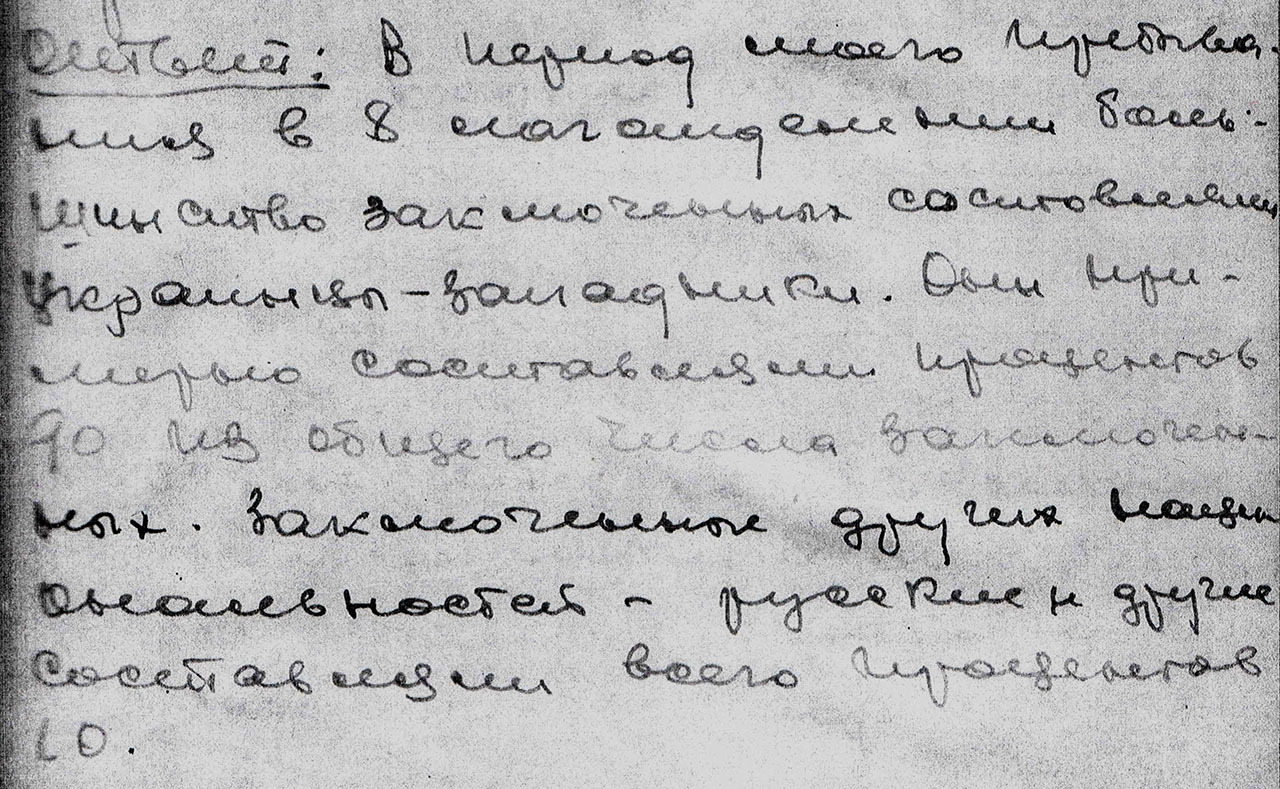 Ответ: В период моего пребыва-
ния в 8 лаготделении боль-
шинство заключенных составляли
украинцы-западники. Они при-
мерно составляли процентов
90 из общего числа заключен-
ных. Заключенные других наци
ональностей - русские и другие
составляли всего процентов
10.